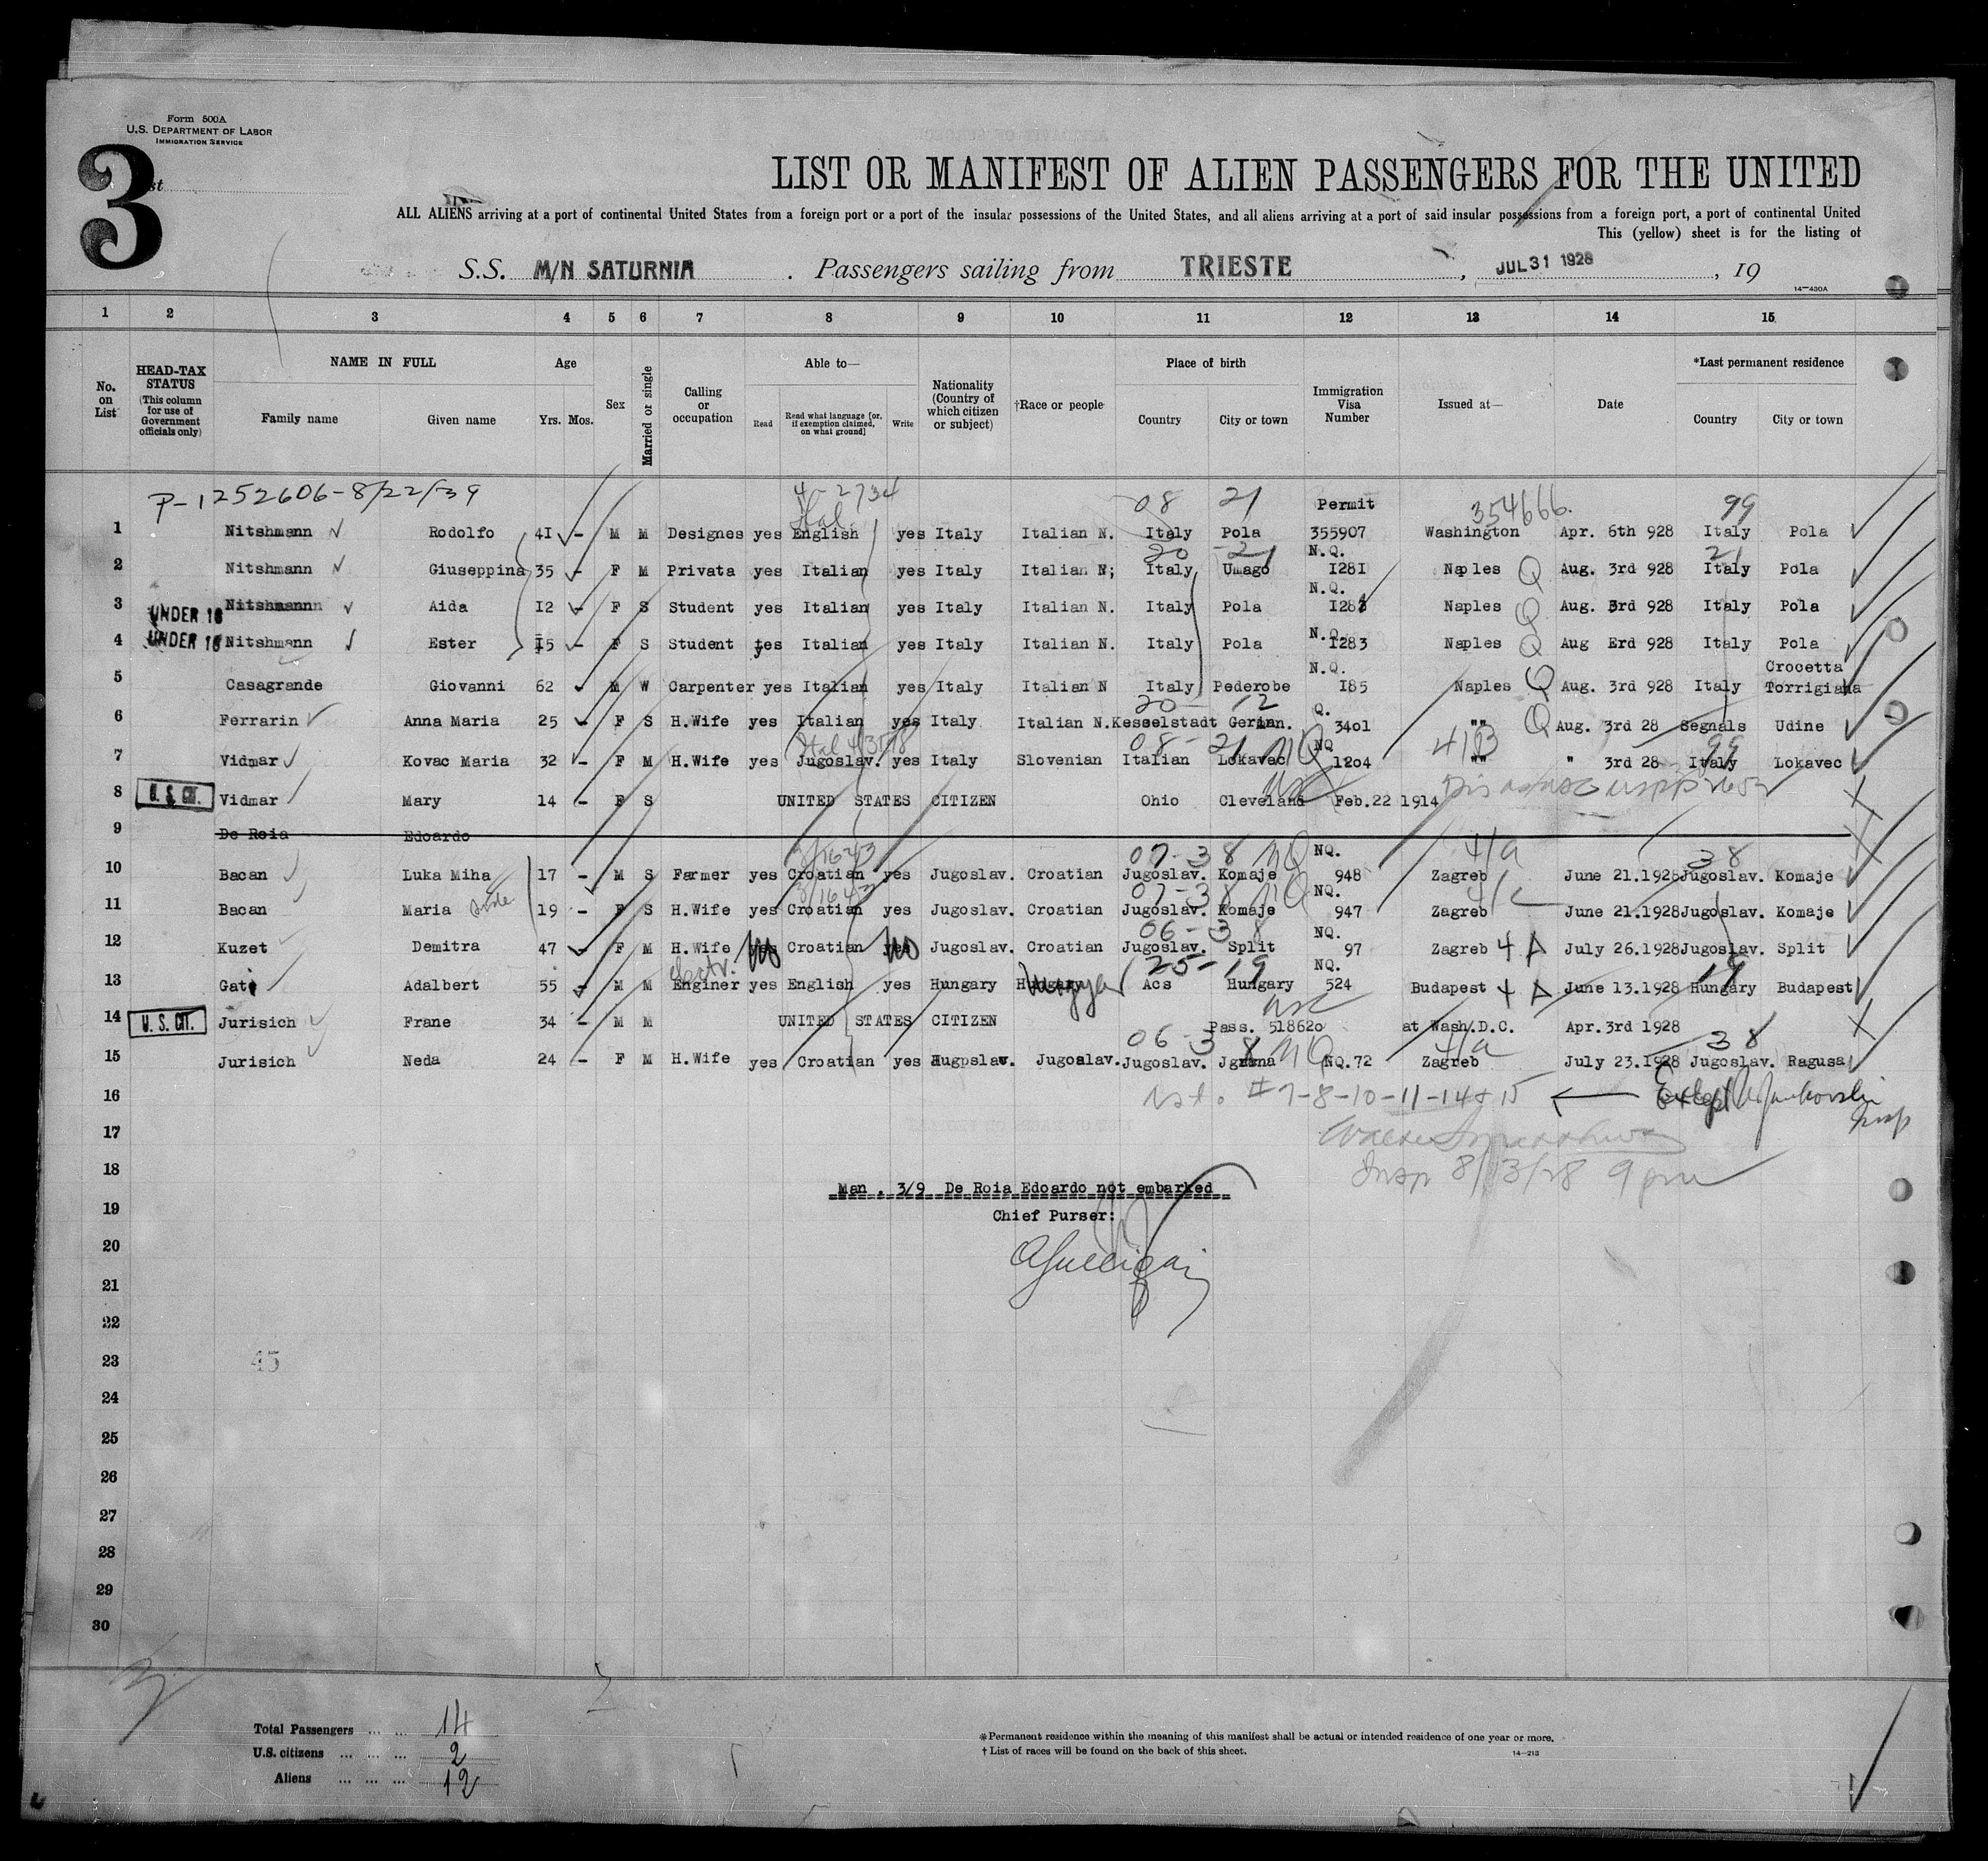 Form 500A
U.S. DEPARTMENT OF LABOR
IMMIGRATION SERVICE
3
st
LIST OR MANIFEST OF ALIEN PASSENGERS FOR THE UNITED
ALL ALIENS arriving at a port of continental United States from a foreign port or a port of the insular possessions of the United States, and all aliens arriving at a port of said insular possessions from a foreign port, a port of continental United
This (yellow) sheet is for the listing of
S.S. M/N SATURNIA . Passengers sailing from TRIESTE , JUL 31 1928 , 19
14—430A
1 2 3 4 5 6 7 8 9 10 11 12 13 14 15
No. on List
HEAD-TAX STATUS (This column for use of Government officials only)
NAME IN FULL
Family name Given name
Age
Yrs. Mos.
Sex
Married or single
Calling or occupation
Able to—
Read Read what language [or, if exemption claimed, on what ground] Write
Nationality (Country of which citizen or subject)
†Race or people
Place of birth
Country City or town
Immigration Visa Number
Issued at—
Date
*Last permanent residence
Country City or town
P-1252606-8/22/39 4-2734 08 21 Permit 354666. 99
1 Nitshmann Rodolfo 4I - M M Designes yes English yes Italy Italian N. Italy Pola 355907 Washington Apr. 6th 928 Italy Pola
20 - 21 N.Q. 21
2 Nitshmann Giuseppina 35 - F M Privata yes Italian yes Italy Italian N; Italy Umago I28I Naples Q Aug. 3rd 928 Italy Pola
N.Q.
3 UNDER 16 Nitshmannn Aida I2 - F S Student yes Italian yes Italy Italian N. Italy Pola I282 Naples Q Aug. 3rd 928 Italy Pola
4 UNDER 16 Nitshmann Ester I5 - F S Student yes Italian yes Italy Italian N. Italy Pola N.Q. I283 Naples Q Aug Erd 928 Italy Pola
N.Q. Crocetta
5 Casagrande Giovanni 62 - M W Carpenter yes Italian yes Italy Italian N Italy Pederobe I85 Naples Q Aug. 3rd 928 Italy Torrigiana
20 - 12 Q.
6 Ferrarin Anna Maria 25 - F S H.Wife yes Italian yes Italy Italian N. Kesselstadt German. 34o1 "" Q Aug. 3rd 28 Segnals Udine
Ital 08 - 21 NQ NQ 99
7 Vidmar Kovac Maria 32 - F M H.Wife yes Jugoslav. yes Italy Slovenian Italian Lokavec 12o4 "" " 3rd 28 Italy Lokavec
8 U.S. CIT. Vidmar Mary 14 - F S UNITED STATES CITIZEN Ohio Cleveland USC Feb.22 1914
9 De Roia Edoardo
07-38 NQ NQ. 4/a 38
10 Bacan Luka Miha 17 - M S Farmer yes Croatian yes Jugoslav. Croatian Jugoslav. Komaje 948 Zagreb June 21.1928 Jugoslav. Komaje
07-38 NQ NQ.
11 Bacan Maria 19 - F S H.Wife yes Croatian yes Jugoslav. Croatian Jugoslav. Komaje 947 Zagreb June 21.1928 Jugoslav. Komaje
06-38 NQ.
12 Kuzet Demitra 47 - F M H.Wife no Croatian no Jugoslav. Croatian Jugoslav. Split 97 Zagreb 4 A July 26.1928 Jugoslav. Split
electr. 25-19 NQ. 19
13 Gati Adalbert 55 - M M Enginer yes English yes Hungary Magyar Acs Hungary 524 Budapest 4 A June 13.1928 Hungary Budapest
14 U.S. CIT. Jurisich Frane 34 - M M UNITED STATES CITIZEN USC Pass. 51862o at Wash.D.C. Apr. 3rd 1928
06-38 NQ 4/a 38
15 Jurisich Neda 24 - F M H.Wife yes Croatian yes Jugoslav. Jugoslav. Jugoslav. NQ.72 Zagreb July 23.1928 Jugoslav. Ragusa
16 #7-8-10-11-14+15 Except
17
18 Insp 8/13/28 9 pm
Man . 3/9 De Roia Edoardo not embarked
19 Chief Purser:
20
21
22
23 45
24
25
26
27
28
29
30
Total Passengers ... ... 14
U.S. citizens ... ... ... 2
Aliens ... ... ... 12
*Permanent residence within the meaning of this manifest shall be actual or intended residence of one year or more.
† List of races will be found on the back of this sheet.
14—213